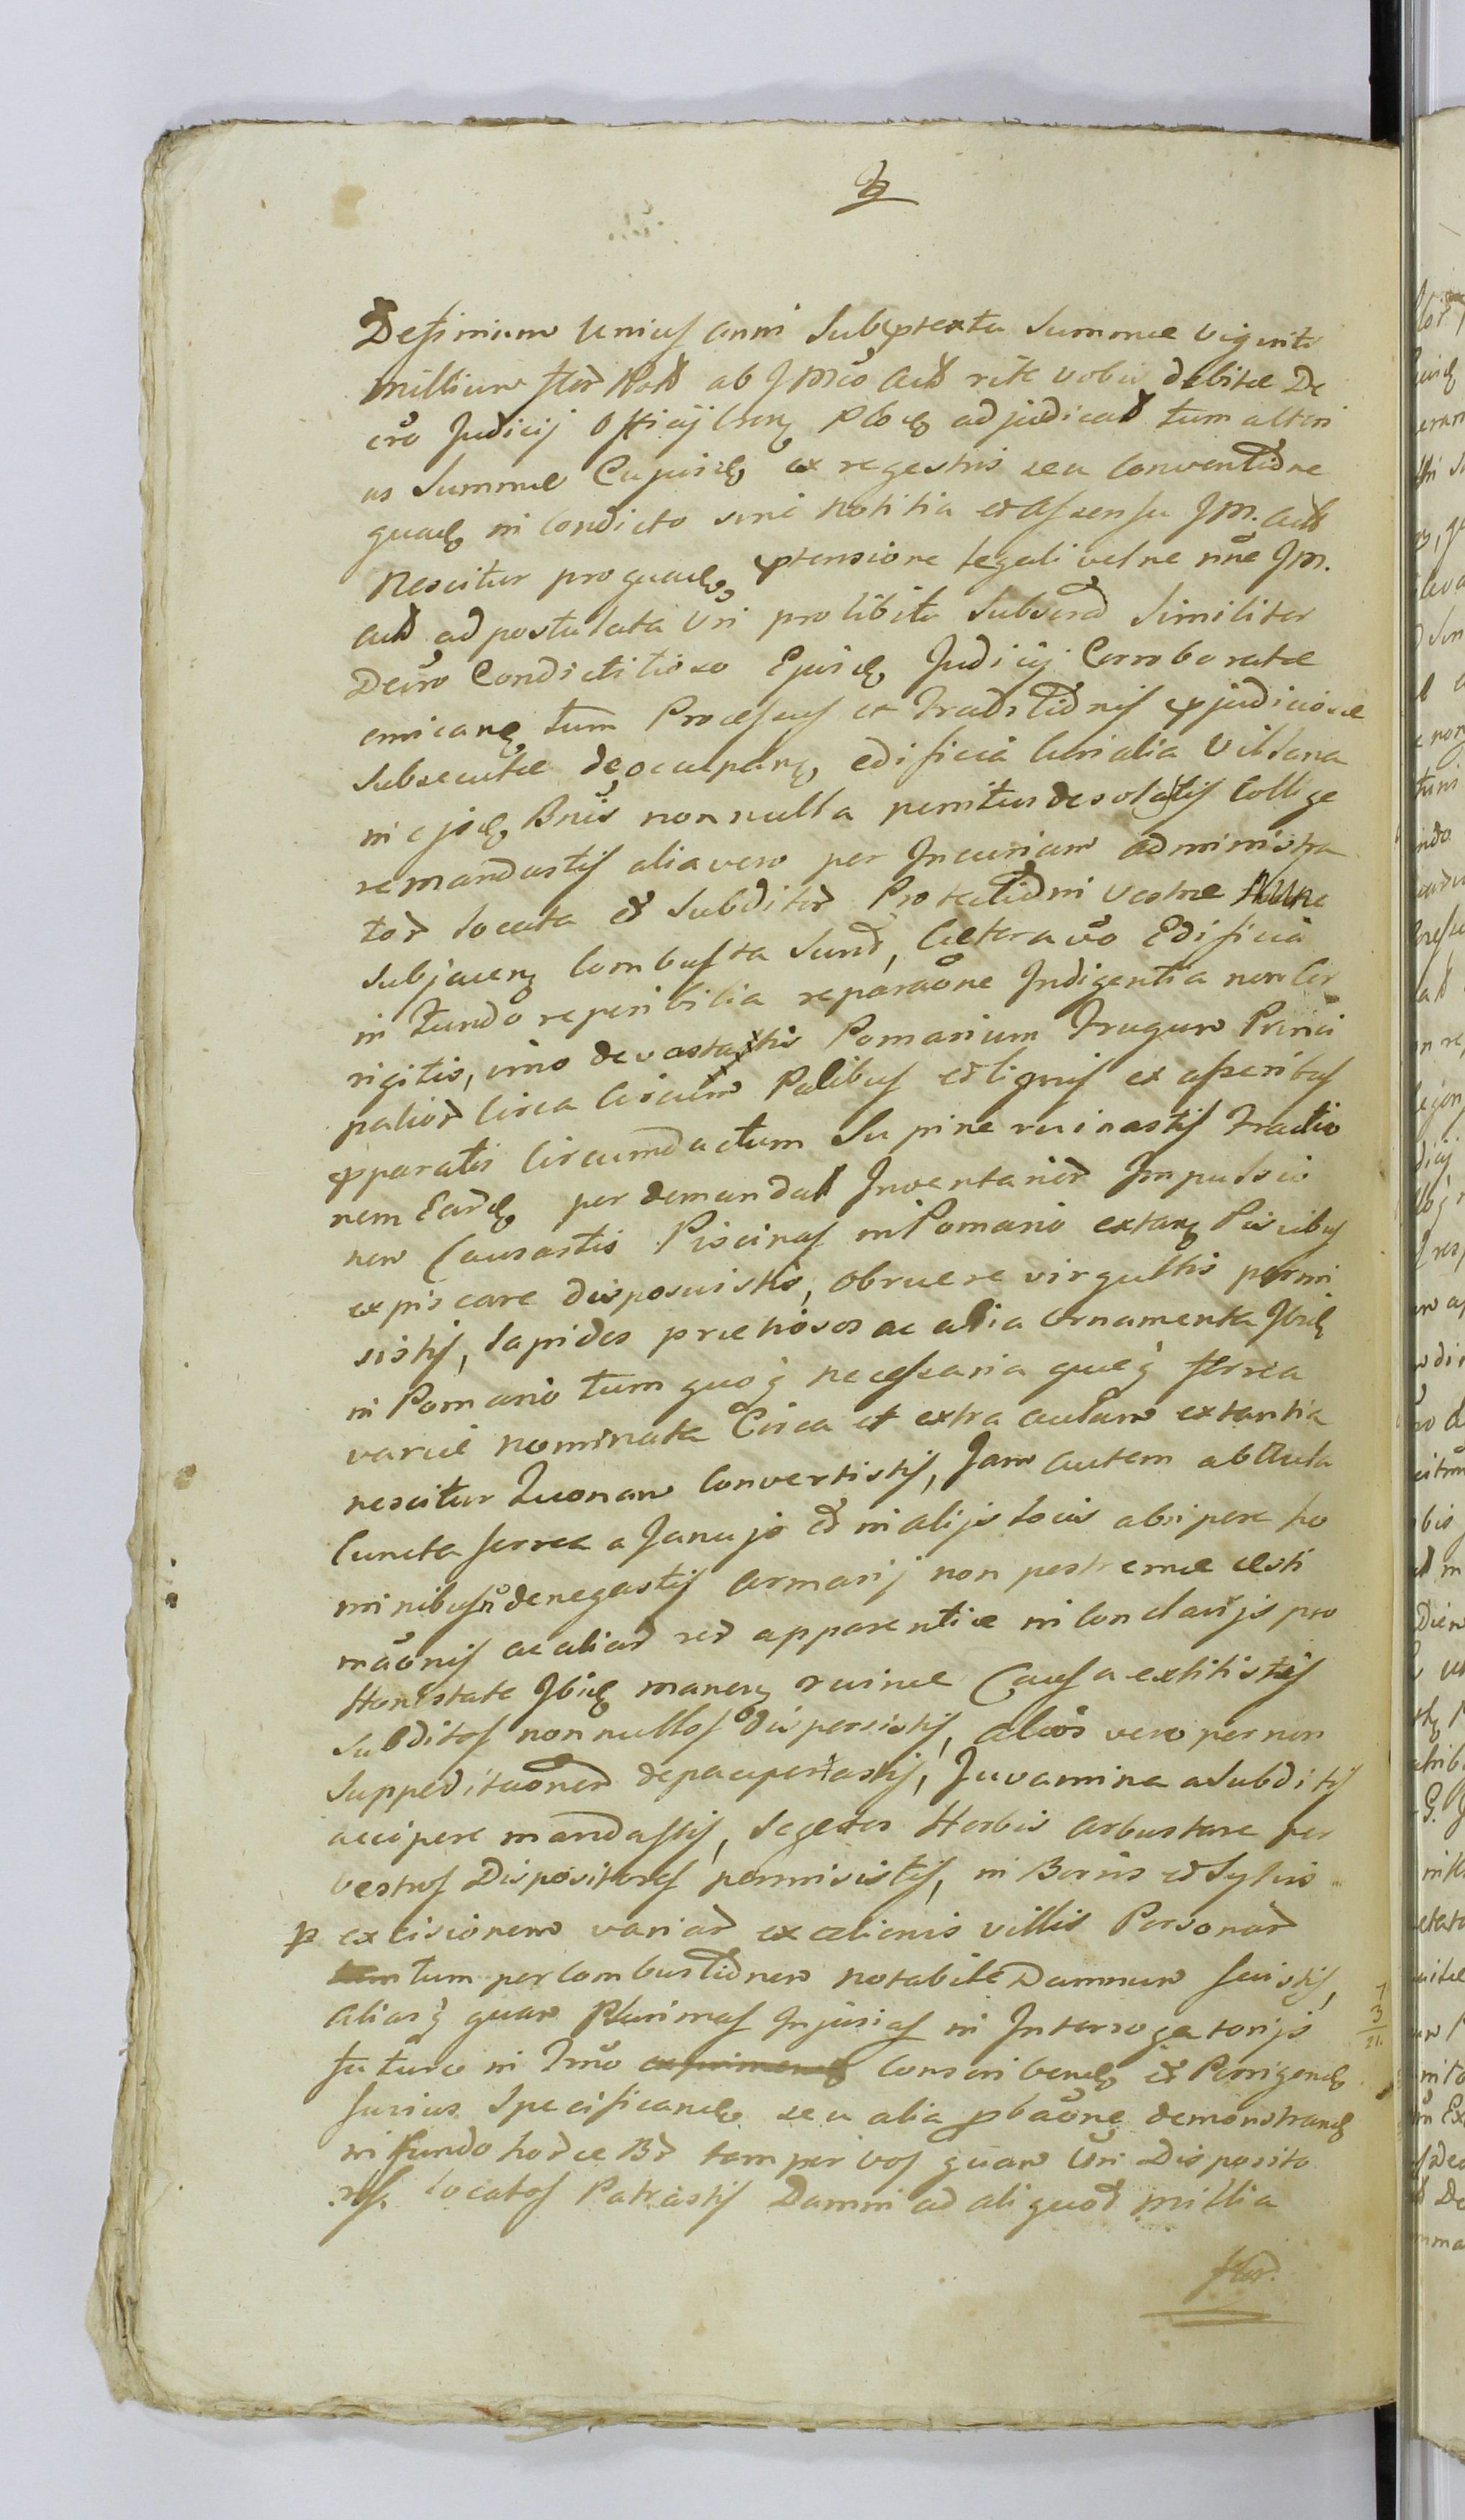 Destinium Unius anni Sub prtextu Summae viginti
millium flor Pold ab JMco Actd rite vobis debitae De
cro Judicij Officij Cson Ploc adjudicat tum alteri
us Summae Cujusd ex regestris seu Conventione
quad in Condicto sine notitia et assensu JM. Actd
Nescitur pro quad, prtensione legali vel ne nne JM.
Actd ad postulata Vri pro libito Subsord Similiter
Decro Condictitioso Ejusd Judicij Corroboratae
emican tum Processus et Traditionis prjudiciosae
Subsecutae de occupan, edificia Curialia Villana
in ejsd Bnis nonnulla penitus desolatis Collige
re mandastis alia vero per Incuriam administra
tor locata et Subditor Protectioni vestrae
Subjacen Combusta Sund, Caetera vo Edificia
in fundo reperibilia reparaone Indigentia non Cor
rigitis, imo devastastis Pomarium Frugum Princi
palior Circa Circulum Palibus et lignis ex asseribus
prparatis Circumdactum Supine ruinastis Fractio
nem Eard per demandat Inventarior Impulsio
nem Causastis Piscinas in Pomario extan Piscibus
expiscare disposuistis, obruere virgultis permi
sistis, lapides praetiosos ac alia ornamenta Ibid
in Pomario tum quoq necessaria queq ferrea
varie nominata Circa et extra aulam extantia
nescitur Quonam Convertistis, Jam autem ab Aula
Cuncta ferrea a Januis et in alijs locis abripere ho
minibus n denegastis Armarij non postremae aesti
maonis ac aliar rer apparentiae in Conclavijs pro
Honestate Ibid manen ruinae Causa extitistis
Subditos nonnullos dispersistis, alios vero per non
Suppeditaonem depauperastis, Juvamina a Subditis
accipere mandastis, Segetes Herbis arbustare per
vestros Dispositores permisistis, in Borris et Sylvis
p excisionem variar ex alienis villis Personar
tum per Combustionem notabile Damnum fecistis,
Aliasq quam Plurimas Injurias in Interrogatorijs
futuro in Trmo Conscribend et Porrigend
furius Specificand seu alia pbaone demonstrand
in fundo horce Br tam per vos quam Vri Disposito
res. locatos Patrastis Damni ad aliquod millia
flor.